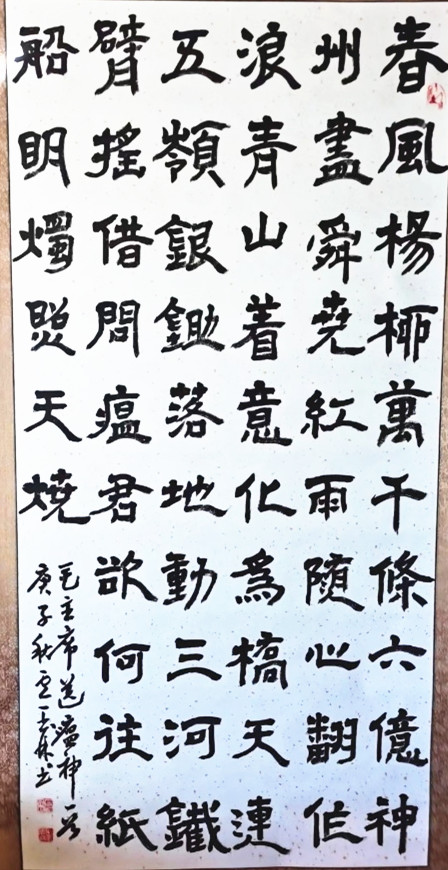 春風楊柳萬千條六億神
州盡舜堯紅雨隨心翻作
浪青山着意化為橋天連
五嶺銀鋤落地動三河鐵
臂搖借問瘟君欲何往紙
船明燭照天燒
毛主席送瘟神一首
庚子秋